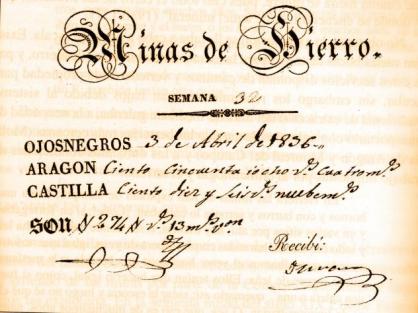 Minas de Hierro.
SEMANA 32
OJOSNEGROS 3 de Abril de 1836
ARAGON Ciento Cincuenta i ocho r.s Cuatro m.s
CASTILLA Ciento diez y seis r.s nuebe m.s
SON 274 r.s 13 m.s von
Recibi: